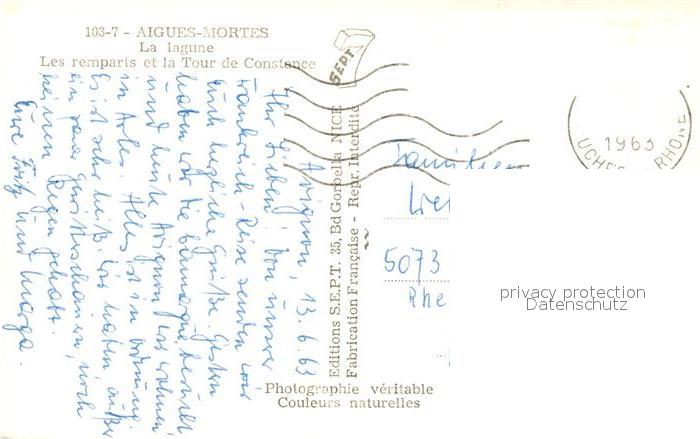 103-7 - AIGUES-MORTES
La lagune
Les remparts et la Tour de Constance
SEPT
Avignon, 13.6.63
Ihr Lieben! Von unserer
Frankreich-Reise senden wir
Euch herzliche Grüße. Gestern
haben wir die Camargue bereist
und heute Avignon. Wir wohnen
in Arles. Alles ist in Ordnung.
Es ist sehr heiß. Wir haben außer
ein paar Gewitterschauern, noch
keinen Regen gehabt.
Eure Fritz und Marga.
Editions S.E.P.T. 35, Bd Gorbella NICE
Fabrication Française - Repr. Interdite
1963
RHONE
Familien
5073
Rhe
privacy protection
Datenschutz
Photographie véritable
Couleurs naturelles